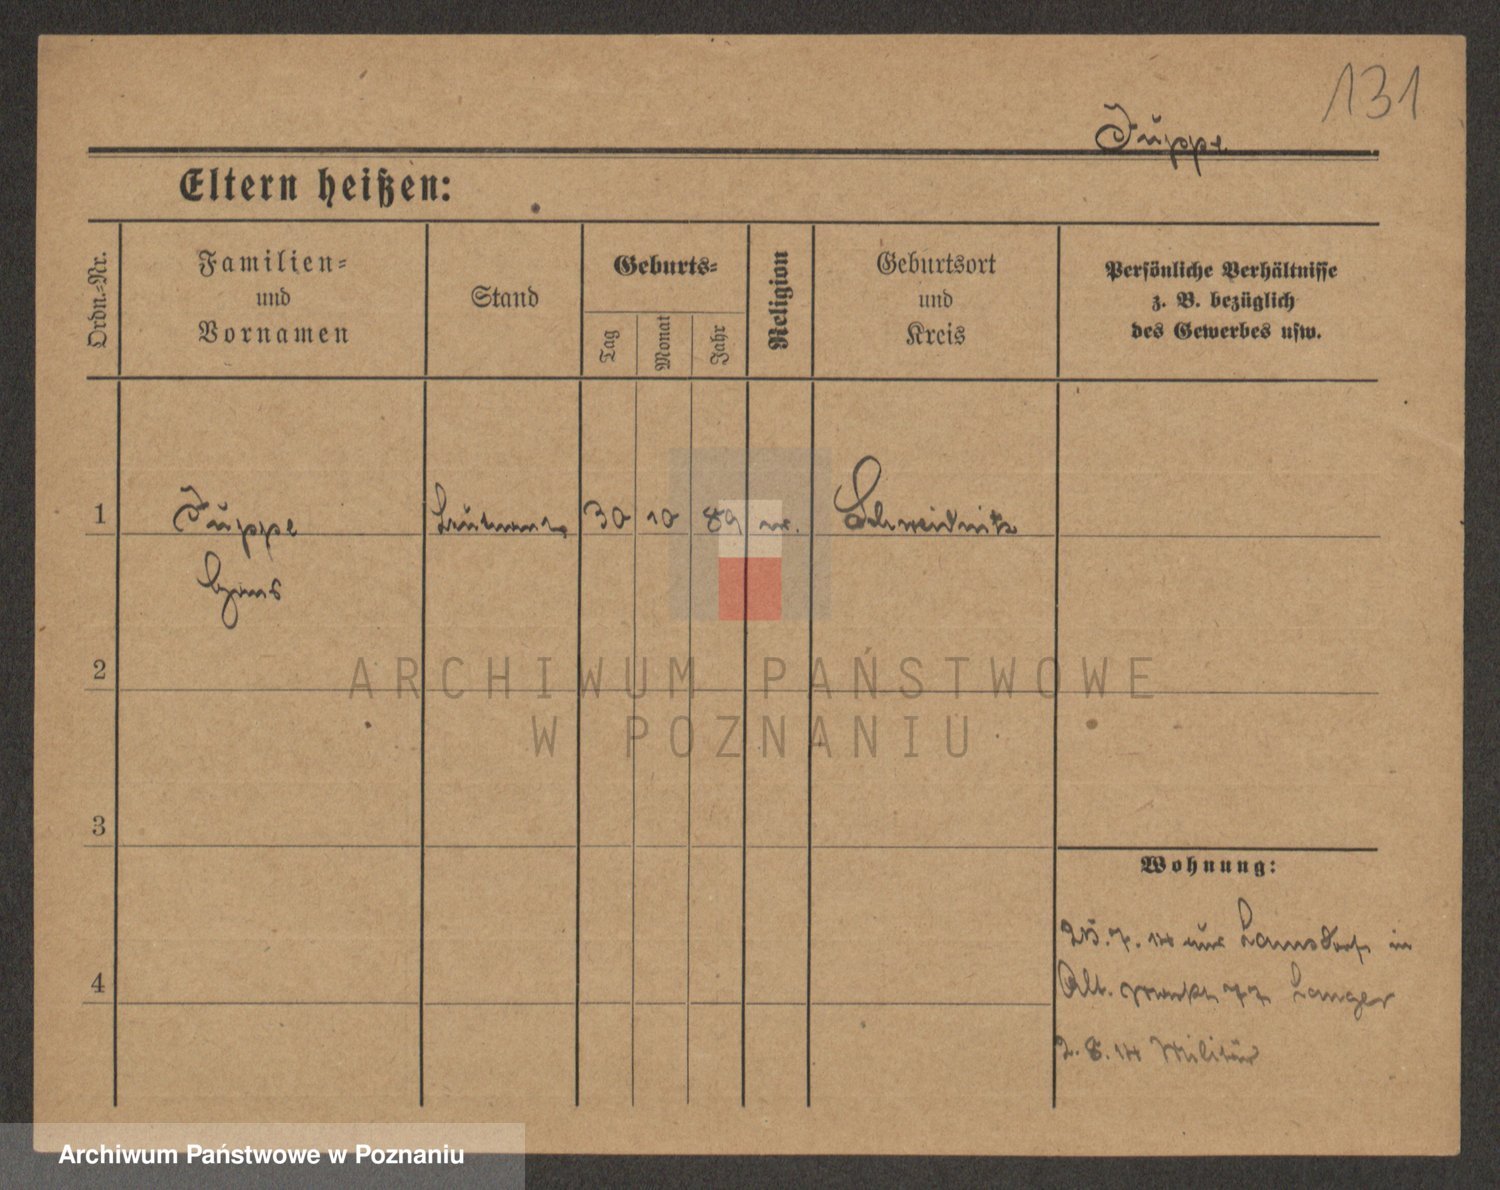 131
Juppe
Eltern heißen:
Ordn.-Nr.
Familien-
und
Vornamen
Stand
Geburts-
Tag
Monat
Jahr
Religion
Geburtsort
und
Kreis
Persönliche Verhältnisse
z. B. bezüglich
des Gewerbes usw.
1
Juppe
Leutnant
30
10
89
Schweidnitz
Hans
2
ARCHIWUM PAŃSTWOWE
W POZNANIU
3
Wohnung:
25.7.14 aus Lamsdorf in
4
Alt. markt 77 Langer
2.8.14 Militär
Archiwum Państwowe w Poznaniu